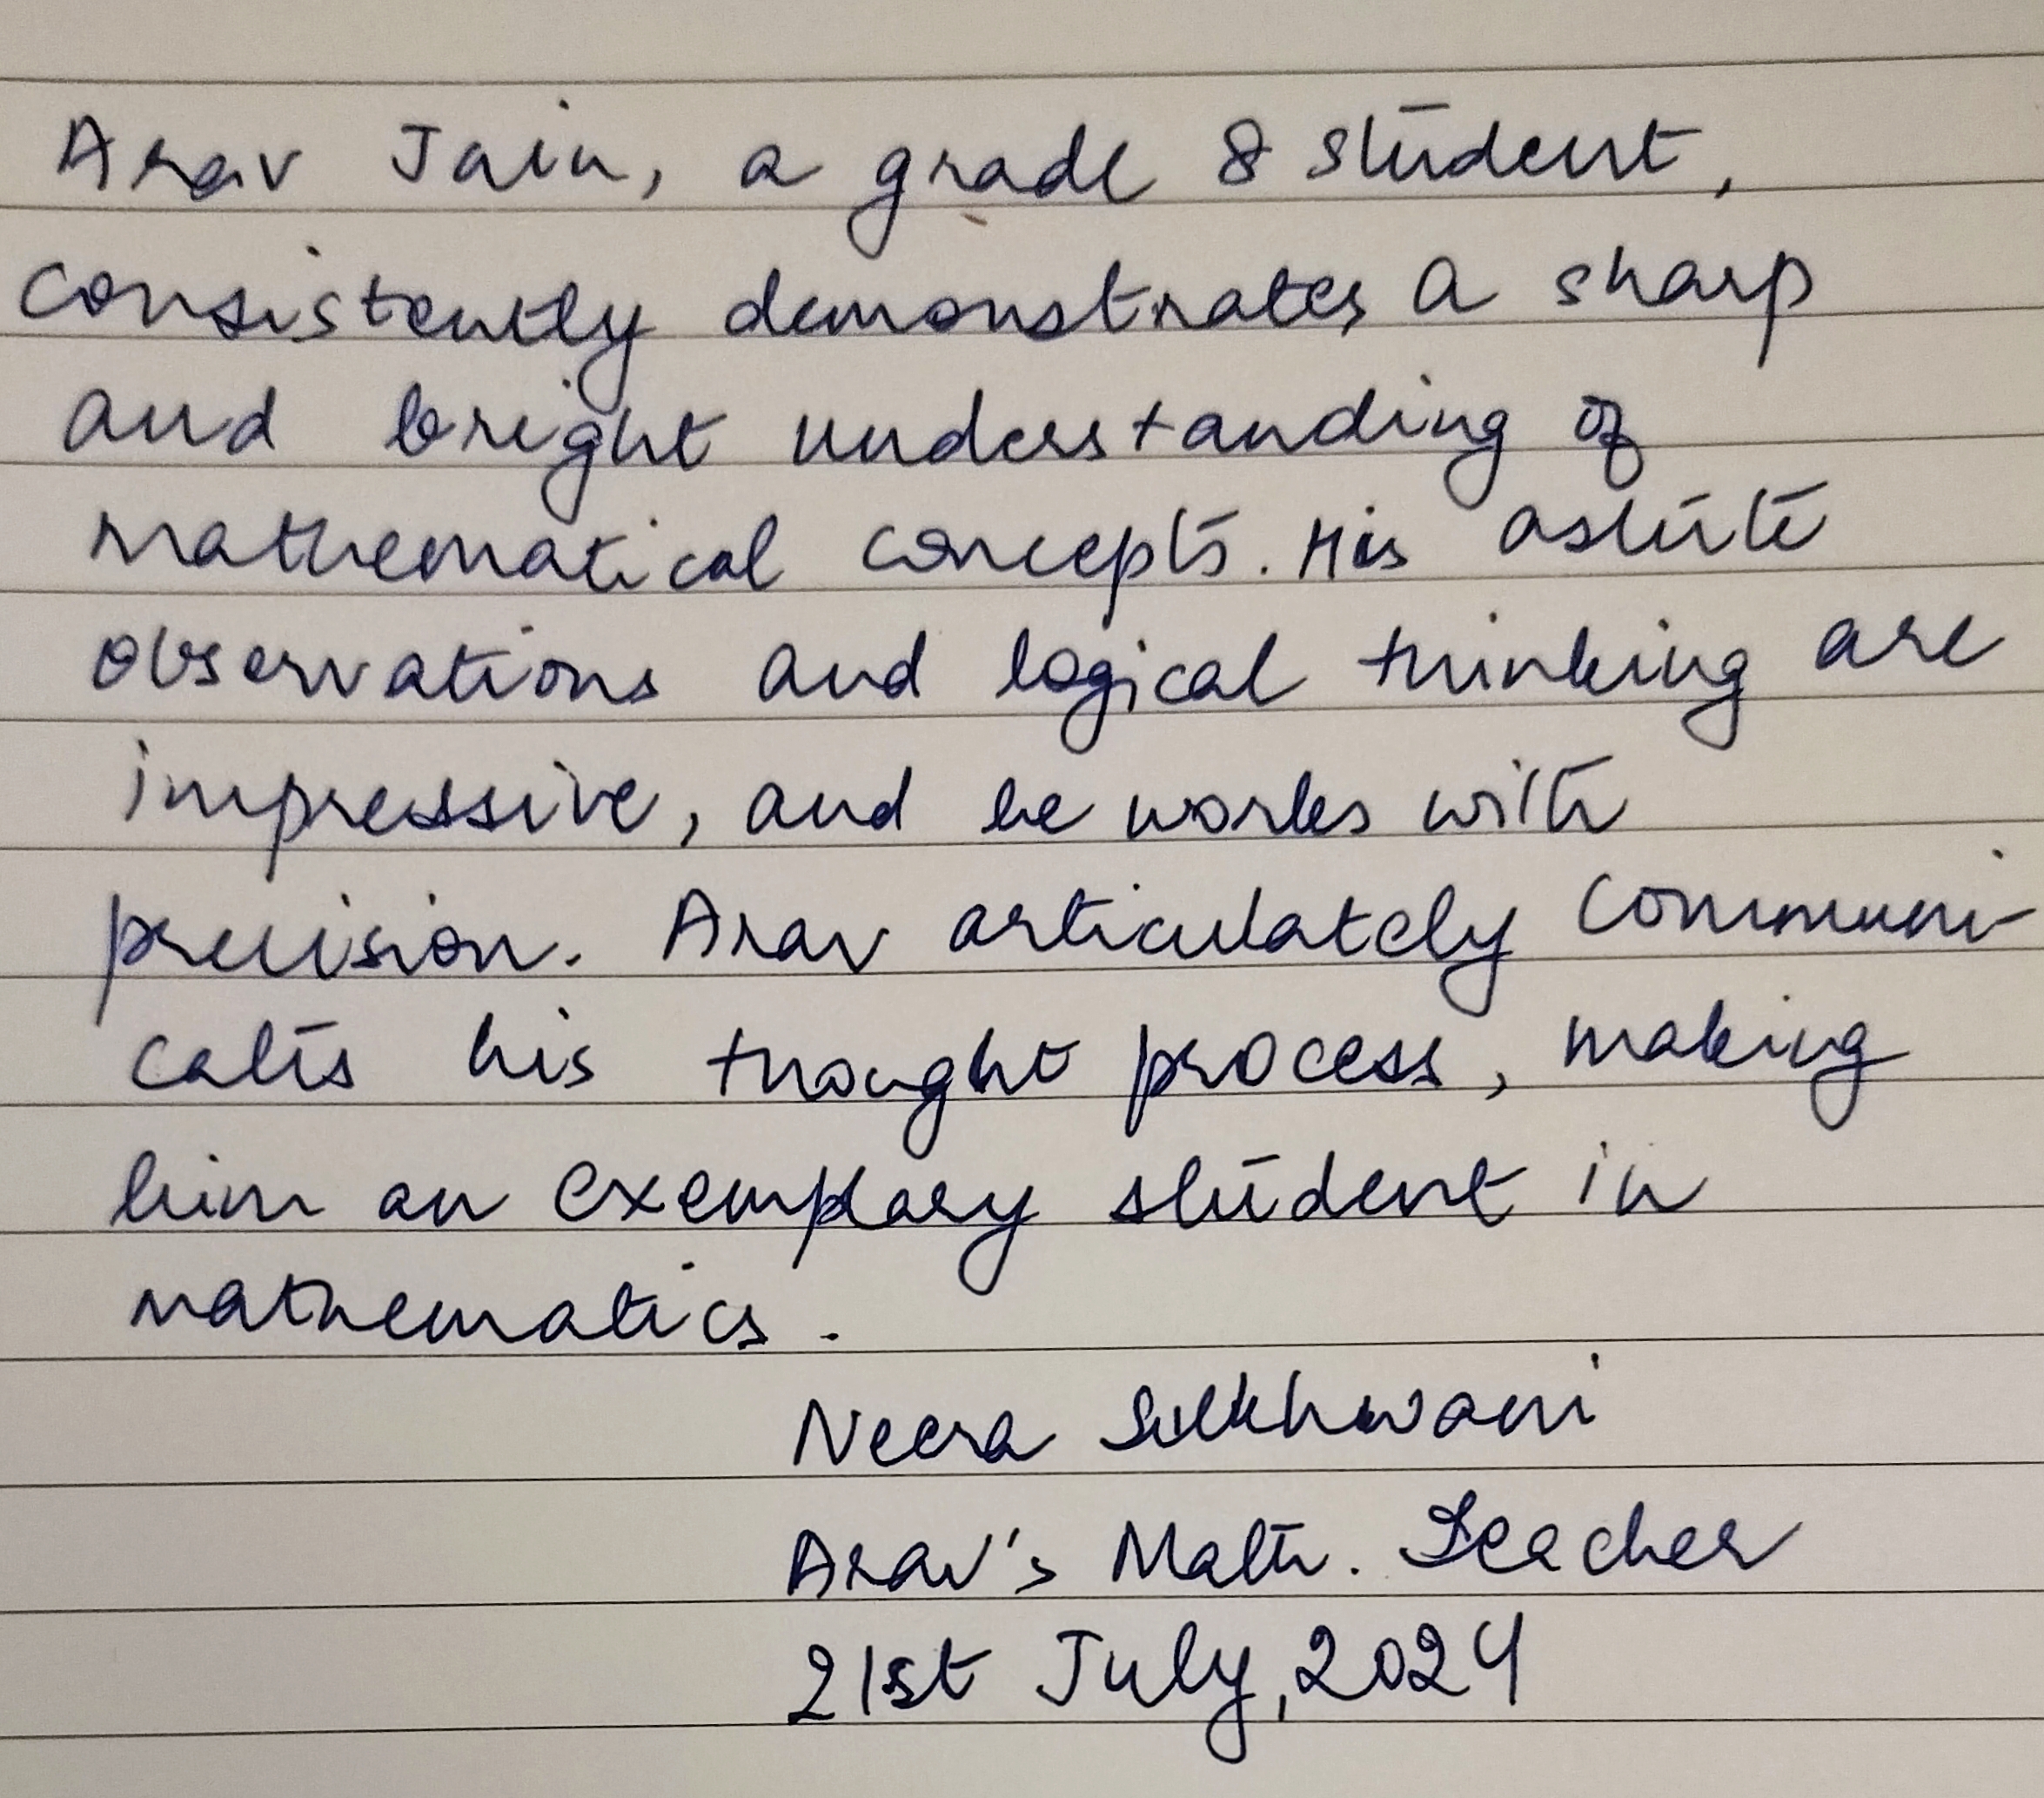 Arav Jain, a grade 8 student,
consistently demonstrates a sharp
and bright understanding of
mathematical concepts. His astute
observations and logical thinking are
impressive, and he works with
precision. Arav articulately communi-
cates his thought process, making
him an exemplary student in
mathematics.
Neera Sukhwani
Arav's Math. Teacher
21st July, 2024